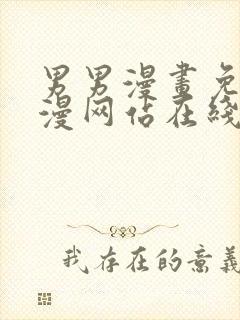 男男漫畫免
漫网佔在綫
我存在的意義